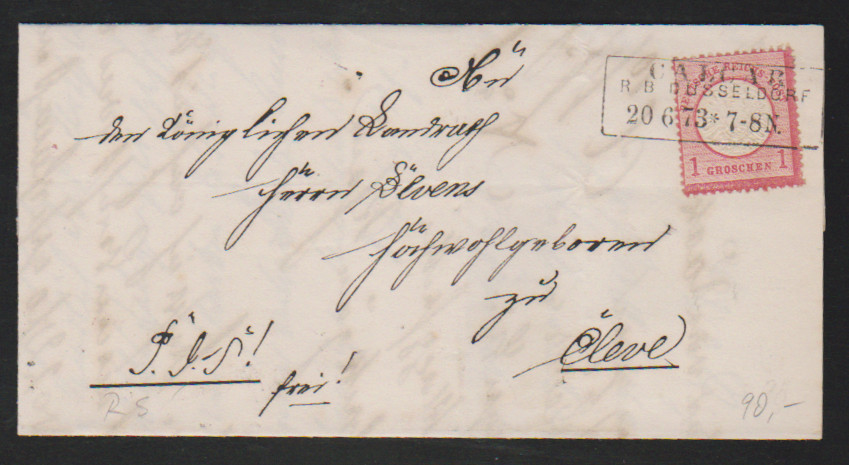 An
den Königlichen Landrath
Herrn Devens
Hochwohlgeboren
zu
Cleve
frei!
CALCAR
R. B. DÜSSELDORF
20 6 73 * 7-8N.
1 GROSCHEN 1
R S
90,-